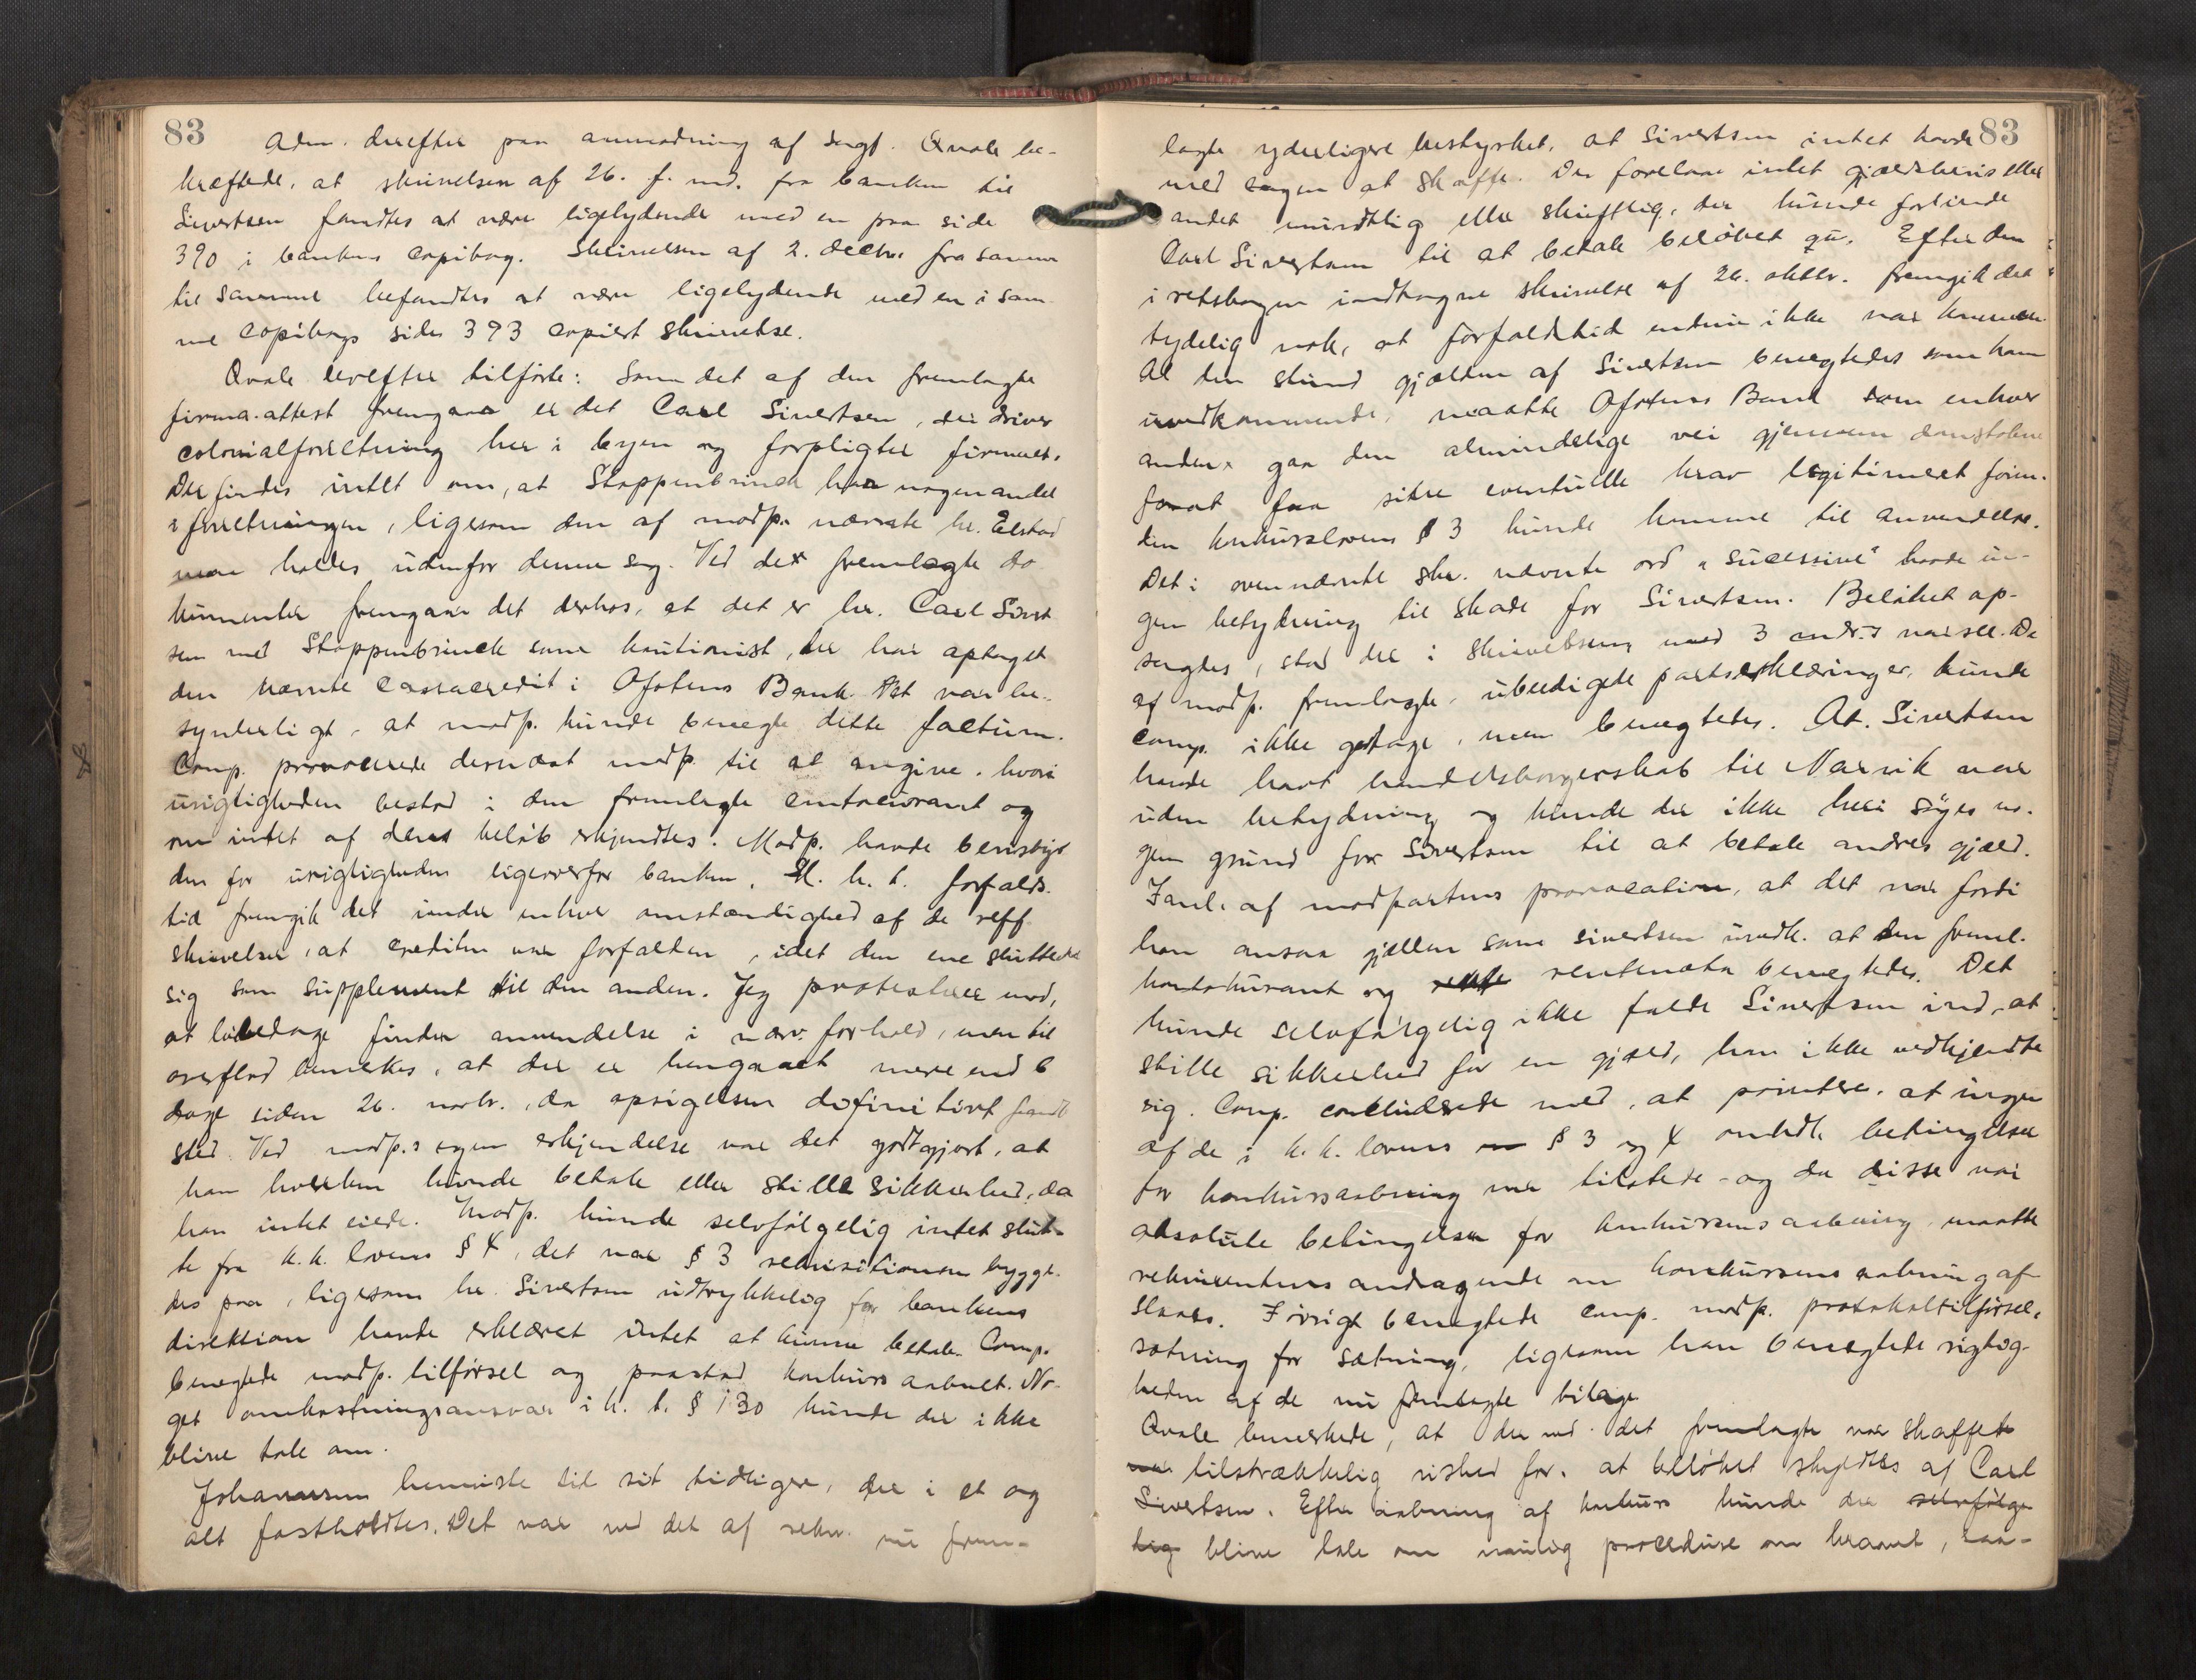 83
Adm. derefter paa anmodning af sagf. Qvale be-
kræftede, at skrivelsen af 26. f. md. fra banken til
Sivertsen fandtes at være ligelydende med en paa side
390 i bankens copibog. Skrivelsen af 2. decbr. fra samme
til samme befandtes at være ligelydende med en i sam
me copibogs side 393 copiert skrivelse.
Qvale derefter tilførte: Som det af den fremlagte
firma-attest fremgaar er det Carl Sivertsen, der driver
colonialforretning her i byen og forpligter firmaet.
Der findes intet om, at Stoppenbrinck har nogen andel
i forretningen, ligesom den af modp. nævnte hr. Elstad
maa holdes udenfor denne sag. Ved de fremlagte do
kumenter fremgaar det derhos, at det er hr. Carl Sivert
sen med Stoppenbrinck som kautionist, der har optaget
den nævnte cassacredit i Ofotens Bank. Det var be-
synderligt, at modp. kunde benegte dette factum.
Comp. provocerede dernæst modp. til at angive, hvori
urigtigheden bestod i den fremlagte contocurant og
om intet af dens beløb erkjendtes. Modp. havde benegtet
den for urigtigheden ligeoverfor banken. M. h. t. forfalds-
tid fremgik det under enhver omstændighed af de reff.
skrivelser, at crediten var forfalden, idet den ene sluttede
sig som supplement til den anden. Jeg protesterer mod,
at løbedage finder anvendelse i nærv. forhold, men til
overflod bemerkes, at der er hengaaet mere end 6
dage siden 26. novbr., da opsigelsen definitivt fandt
sted. Ved modp.s egen erkjendelse var det godtgjort, at
han hverken kunde betale eller stille sikkerhed, da
han intet eiede. Modp. kunde selvfølgelig intet slut-
te fra k.k. lovens § 4, det var § 3 rekvisitionen bygge-
des paa, ligesom hr. Sivertsen udtrykkelig for bankens
direktion havde erklæret intet at kunne betale. Comp.
benegtede modp. tilførsel og paastod konkurs aabnet. No-
get omkostningsansvar i h. t. § 130 kunde der ikke
blive tale om.
Johannessen henviste til sit tidligere, der i et og
alt fastholdtes. Det var ved det af rekv. nu frem-
83
lagte yderligere bestyrket, at Sivertsen intet havde
med sagen at skaffe. Der forelaa intet gjældsbevis eller
andet mundtlig eller skriftlig, der kunde forbinde
Carl Sivertsen til at betale beløbet qu. Efter den
i retsbogen indtagne skrivelse af 26. oktbr. fremgik det
tydelig nok, at forfaldstid endnu ikke var kommen.
Al den stund gjælden af Sivertsen benegtedes som ham
uvedkommende, maatte Ofotens Bank som enhver
anden gaa den almindelige vei gjennem domstolene
forat faa sine eventuelle krav legitimeret foren-
den konkurslovens § 3 kunde komme til anvendelse.
Det i ovennævnte skr. nævnte ord "sucessive" havde in-
gen betydning til skade for Sivertsen. Beløbet op-
sagdes, stod der i skrivelsen, med 3 mdr.s varsel. De
af modp. fremlagte, ubeedigede partserklæringer, kunde
comp. ikke godtage, men benegtedes. At Sivertsen
havde havt handelsborgerskab til Narvik var
uden betydning og kunde der ikke heri søges no-
gen grund for Sivertsen til at betale andres gjæld.
Ianl. af modpartens provocation, at det var fordi
han ansaa gjælden som Sivertsen uvedk. at den freml.
kontokurant og rentenota benegtedes. Det
kunde selvfølgelig ikke falde Sivertsen ind, at
stille sikkerhed for en gjæld, han ikke vedkjendte
sig. Comp. concluderede med, at pointere, at ingen
af de i k.k. lovens § 3 og 4 omhdl. betingelser
for konkursaabning var tilstede - og da disse var
absolute betingelser for konkursens aabning, maatte
rekvirentens andragende om konkursens aabning af-
slaaes. Iøvrigt benegtede comp. modp. protokoltilførsel,
sætning for sætning, ligesom han benegtede rigtig-
heden af de nu fremlagte bilage.
Qvale bemerkede, at der ved det fremlagte var skaffet
tilstrækkelig vished for, at beløbet skyldtes af Carl
Sivertsen. Efter aabning af konkurs kunde der selvfølge
lig blive tale om vanlig procedure om kravet, saa-